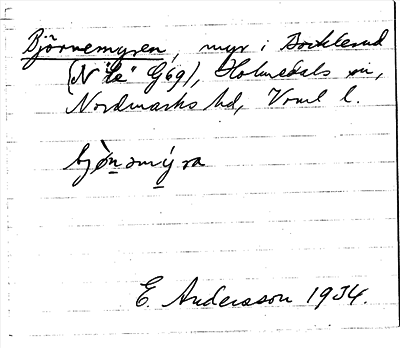 Björnemyren, myr i Bocklerud
(N "le" G69), Holmedals sn,
Nordmarks hd, Vrml l.
bjò̱nsmý̱ra
E. Andersson 1934.